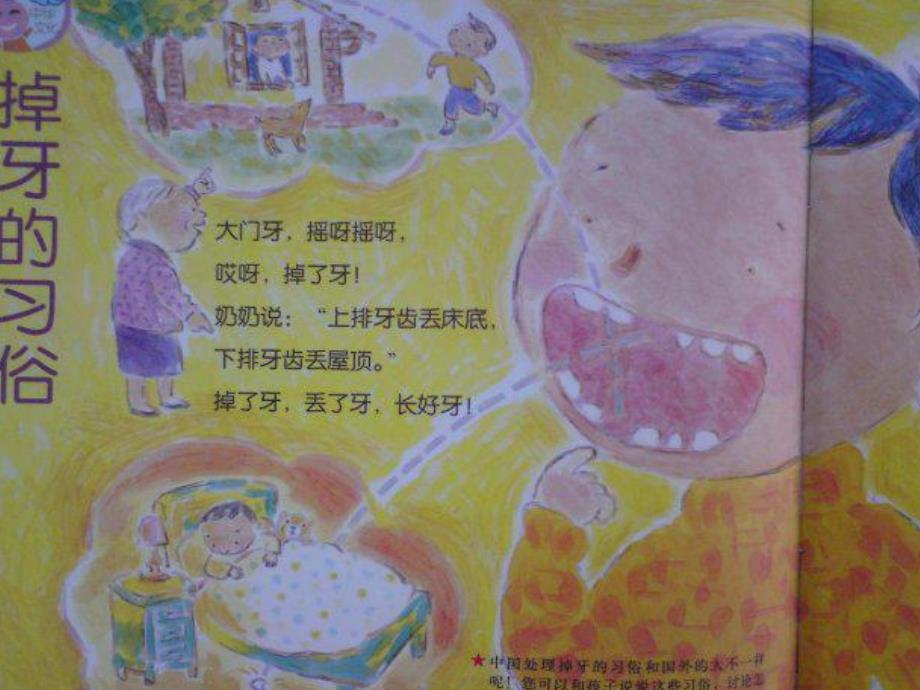 掉牙的习俗
大门牙，摇呀摇呀，
哎呀，掉了牙！
奶奶说：“上排牙齿丢床底，
下排牙齿丢屋顶。”
掉了牙，丢了牙，长好牙！
★中国处理掉牙的习俗和国外的大不一样
呢！您可以和孩子说说这些习俗，讨论怎